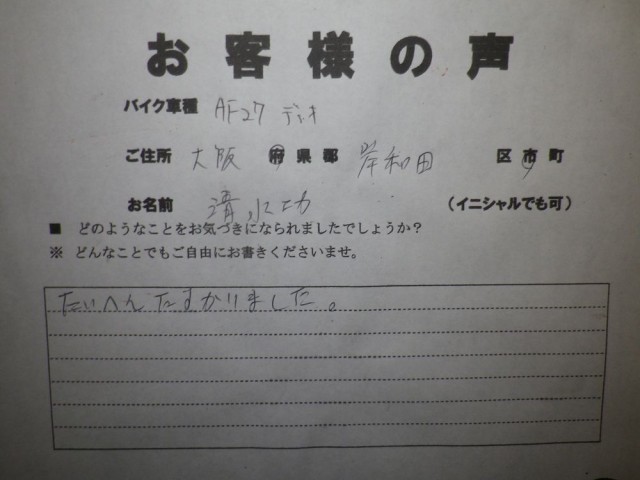 お客様の声
バイク車種 AF27 ディオ
ご住所 大阪 府県郡 岸和田 区市町
お名前 清水功 (イニシャルでも可)
■ どのようなことをお気づきになられましたでしょうか?
※ どんなことでもご自由にお書きくださいませ。
たいへんたすかりました。